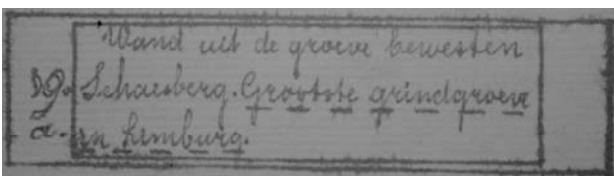 Wand uit de groeve bewesten
39. Schaesberg. Grootste grindgroeve
a. in Limburg.